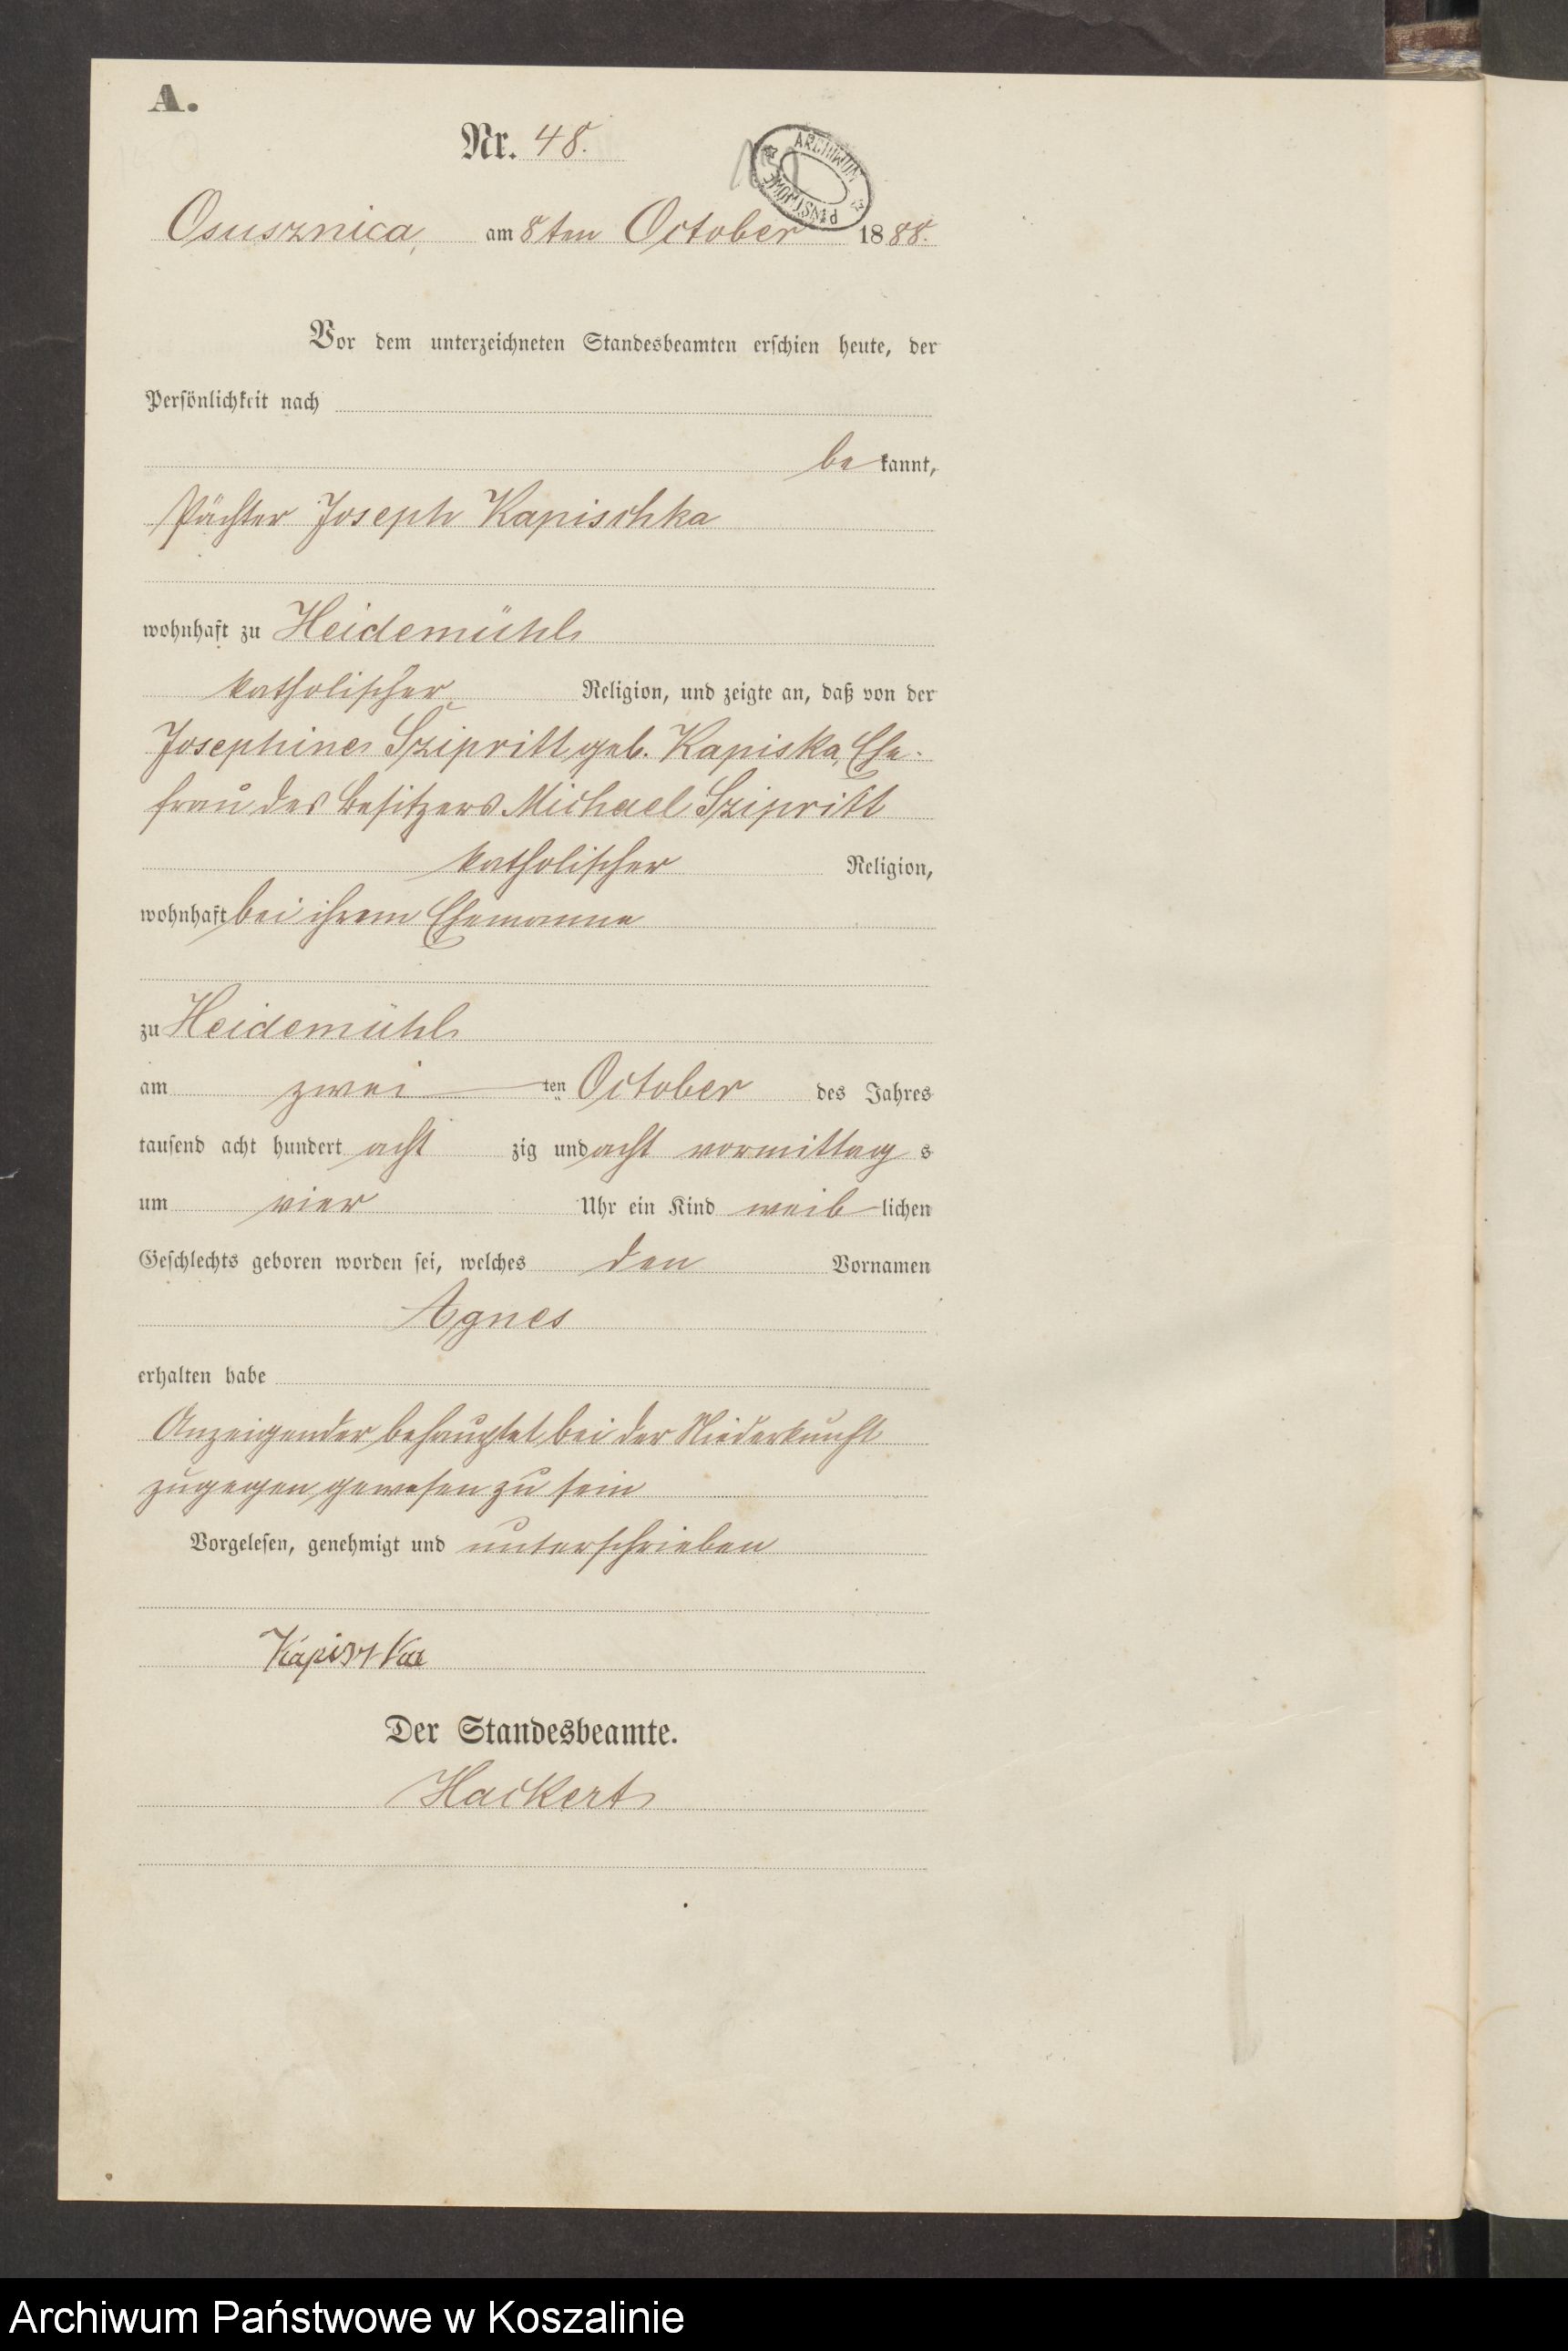 A.
Nr. 48.
ARCHIWUM PAŃSTWOWE
Osusznica, am 8ten October 1888.
Vor dem unterzeichneten Standesbeamten erschien heute, der
Persönlichkeit nach
bekannt,
Pächter Joseph Kapischka
wohnhaft zu Heidemühl
katholischer Religion, und zeigte an, daß von der
Josephine Szipritt geb. Kapiska, Ehe-
frau des Besitzers Michael Szipritt
katholischer Religion,
wohnhaft bei ihrem Ehemanne
zu Heidemühl
am zweiten October des Jahres
tausend acht hundert achtzig und acht vormittags
um vier Uhr ein Kind weiblichen
Geschlechts geboren worden sei, welches den Vornamen
Agnes
erhalten habe
Anzeigender behauptet bei der Niederkunft
zugegen gewesen zu sein
Vorgelesen, genehmigt und unterschrieben
Der Standesbeamte.
Hackert
Archiwum Państwowe w Koszalinie